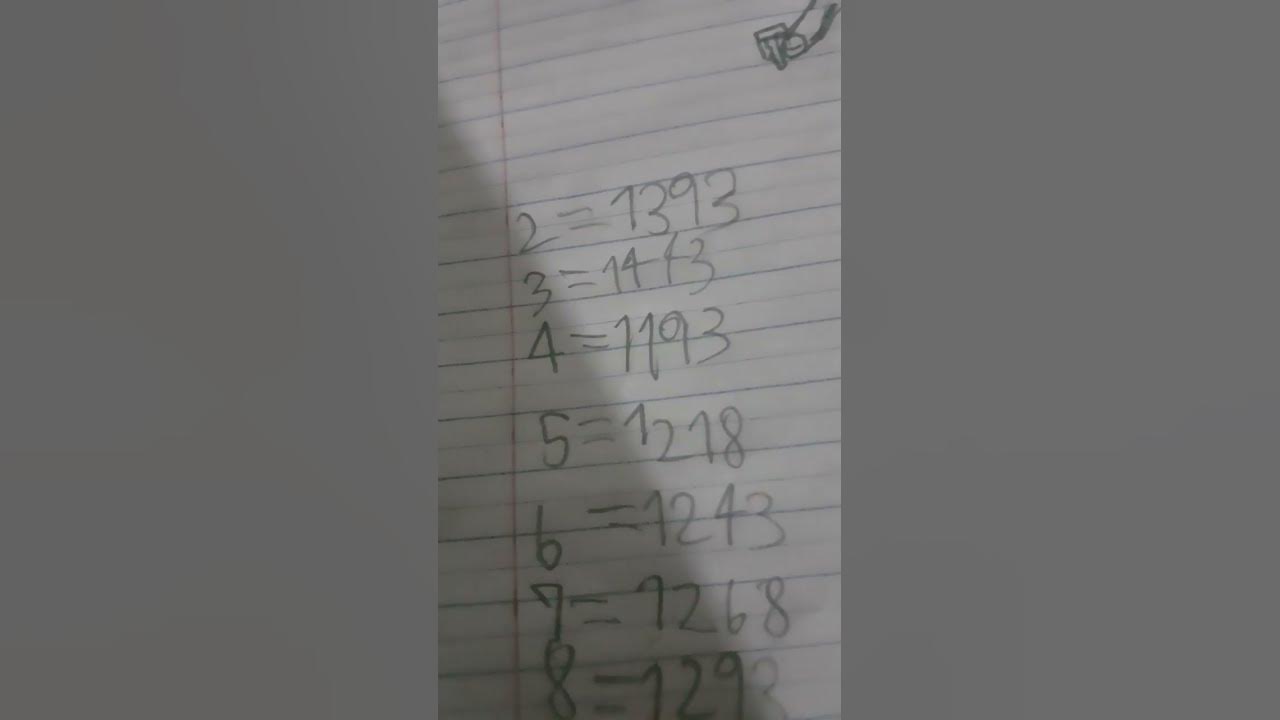 2=1393
3=1443
4=1193
5=1218
6=1243
7=1268
8=1293